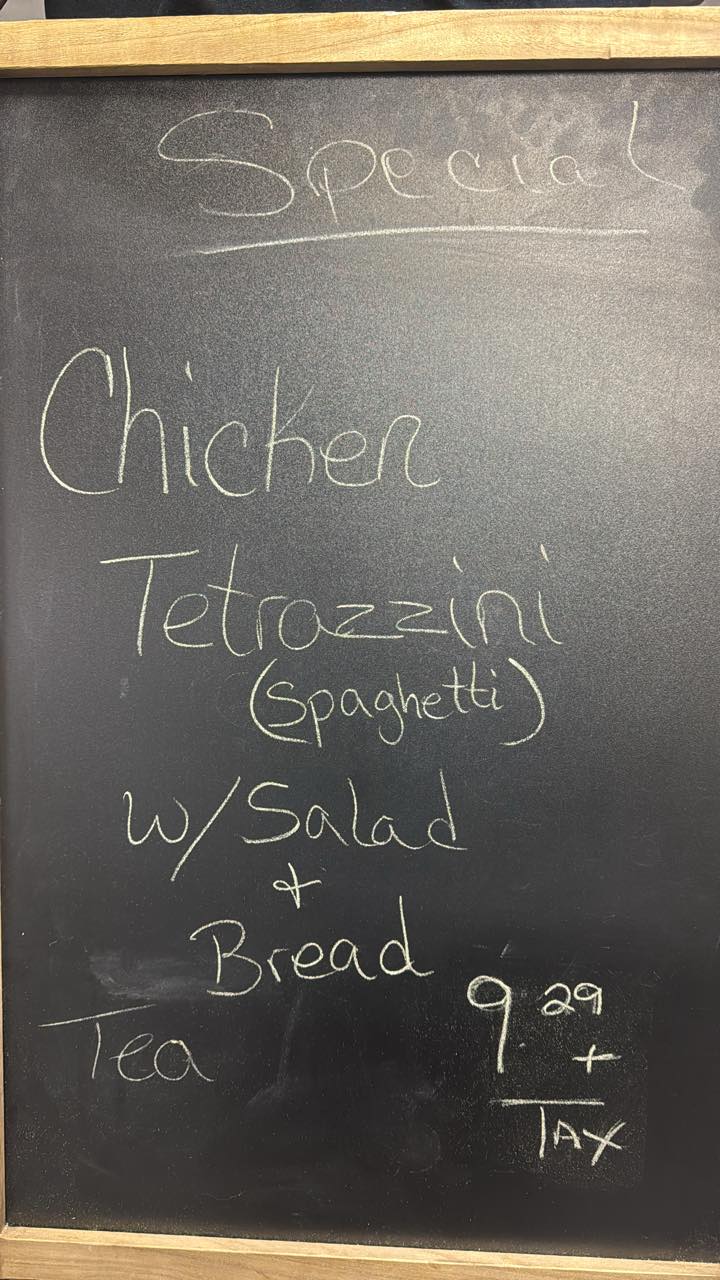 Special
Chicken
Tetrazzini
(Spaghetti)
w/Salad
+
Bread
Tea
9.29
+
TAX